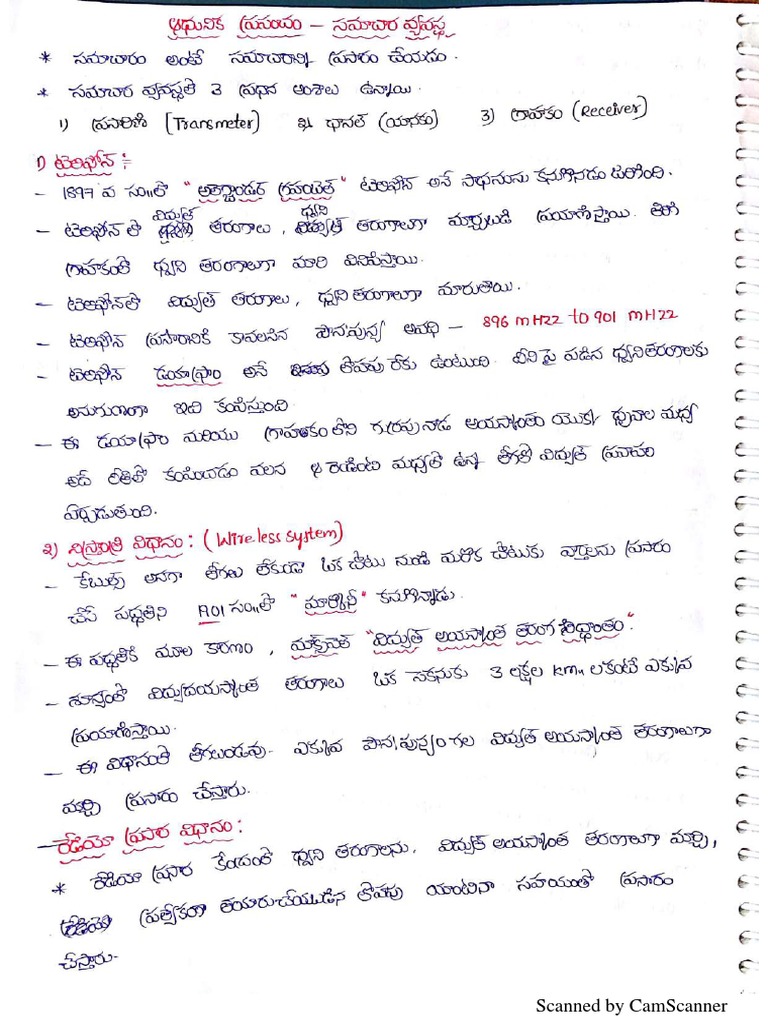 ఆధునిక ప్రపంచం - సమాచార వ్యవస్థ
* సమాచారం అంటే సమాచారాన్ని ప్రసారం చేయడం.
* సమాచార వ్యవస్థలో 3 ప్రధాన అంశాలు ఉన్నాయి.
1) ప్రసారిణి (Transmeter) 2) ఛానల్ (యానకం) 3) గ్రాహకం (Receiver)
1) టెలిఫోన్ :
- 1897 వ సం॥లో " అలెగ్జాండర్ గ్రహంబెల్" టెలిఫోన్ అనే సాధనమును కనుగొనడం జరిగింది.
- టెలిఫోన్ లో విద్యుత్ తరంగాలు, ధ్వని తరంగాలుగా మార్చబడి ప్రయాణిస్తాయి. తిరిగి
గ్రాహకంలో ధ్వని తరంగాలుగా మారి వినిపిస్తాయి.
- టెలిఫోన్‌లో విద్యుత్ తరంగాలు, ధ్వని తరంగాలుగా మారుతాయి.
- టెలిఫోన్ ప్రసారానికి కావలసిన పౌనఃపున్య అవధి - 896 mHZZ to 901 mHZZ
- టెలిఫోన్ డయాఫ్రం అనే లోహపు రేకు ఉంటుంది. దీని పై పడిన ధ్వనితరంగాలకు
అనుగుణంగా ఇది కంపిస్తుంది.
- ఈ డయాఫ్రం మరియు గ్రాహకం లోని గుర్రపునాడ అయస్కాంతం యొక్క ధ్రువాల మధ్య
అదే రీతిలో కంపించడం వలన ఈ రెండింటి మధ్యలో ఉన్న తీగలో విద్యుత్ ప్రవాహం
ఏర్పడుతుంది.
2) నిస్తంత్రి విధానం : (Wireless system)
- కేబుల్స్ అనగా తీగలు లేకుండా ఒక చోటు నుండి మరొక చోటుకు వార్తలను ప్రసారం
చేసే పద్ధతిని 1901 సం॥లో "మార్కోనీ" కనుగొన్నాడు.
- ఈ పద్ధతికి మూల కారణం, మాక్స్‌వెల్ "విద్యుత్ అయస్కాంత తరంగ సిద్ధాంతం".
- శూన్యంలో విద్యుదయస్కాంత తరంగాలు ఒక సెకనుకు 3 లక్షల km॥ లకంటే ఎక్కువ
ప్రయాణిస్తాయి.
- ఈ విధానంలో తీగలుండవు. ఎక్కువ పౌనఃపున్యం గల విద్యుత్ అయస్కాంత తరంగాలుగా
మార్చి ప్రసారం చేస్తారు.
- రేడియో ప్రసార విధానం :
* రేడియో ప్రసార కేంద్రంలో ధ్వని తరంగాలను, విద్యుత్ అయస్కాంత తరంగాలుగా మార్చి,
ప్రత్యేకంగా తయారుచేయబడిన లోహపు యాంటినా సహాయంతో ప్రసారం
చేస్తారు.
Scanned by CamScanner